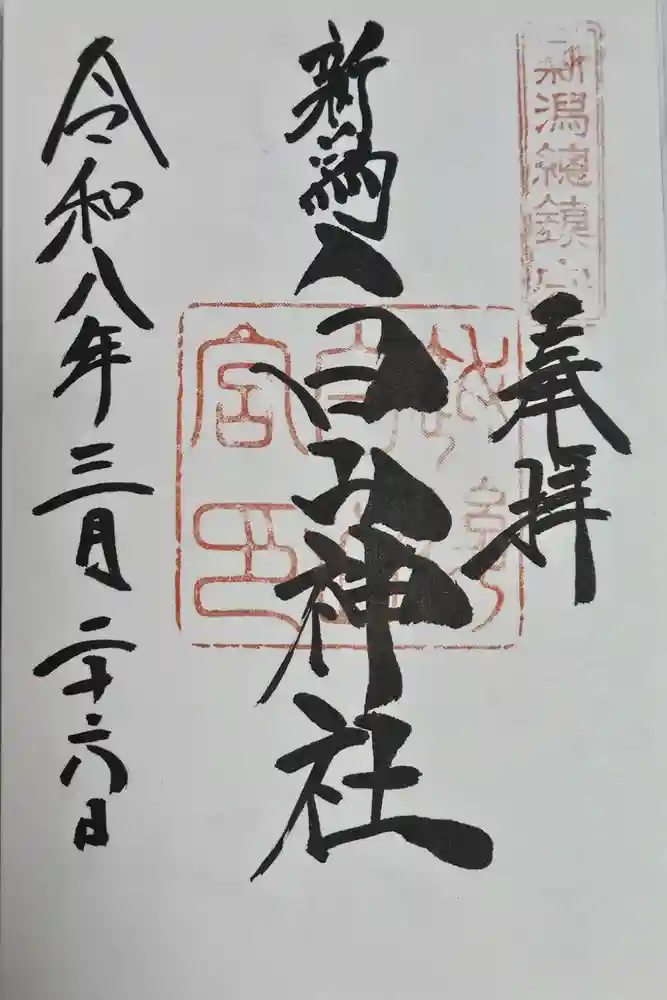 新潟總鎮守
奉拝
新潟白山神社
令和八年三月二十六日